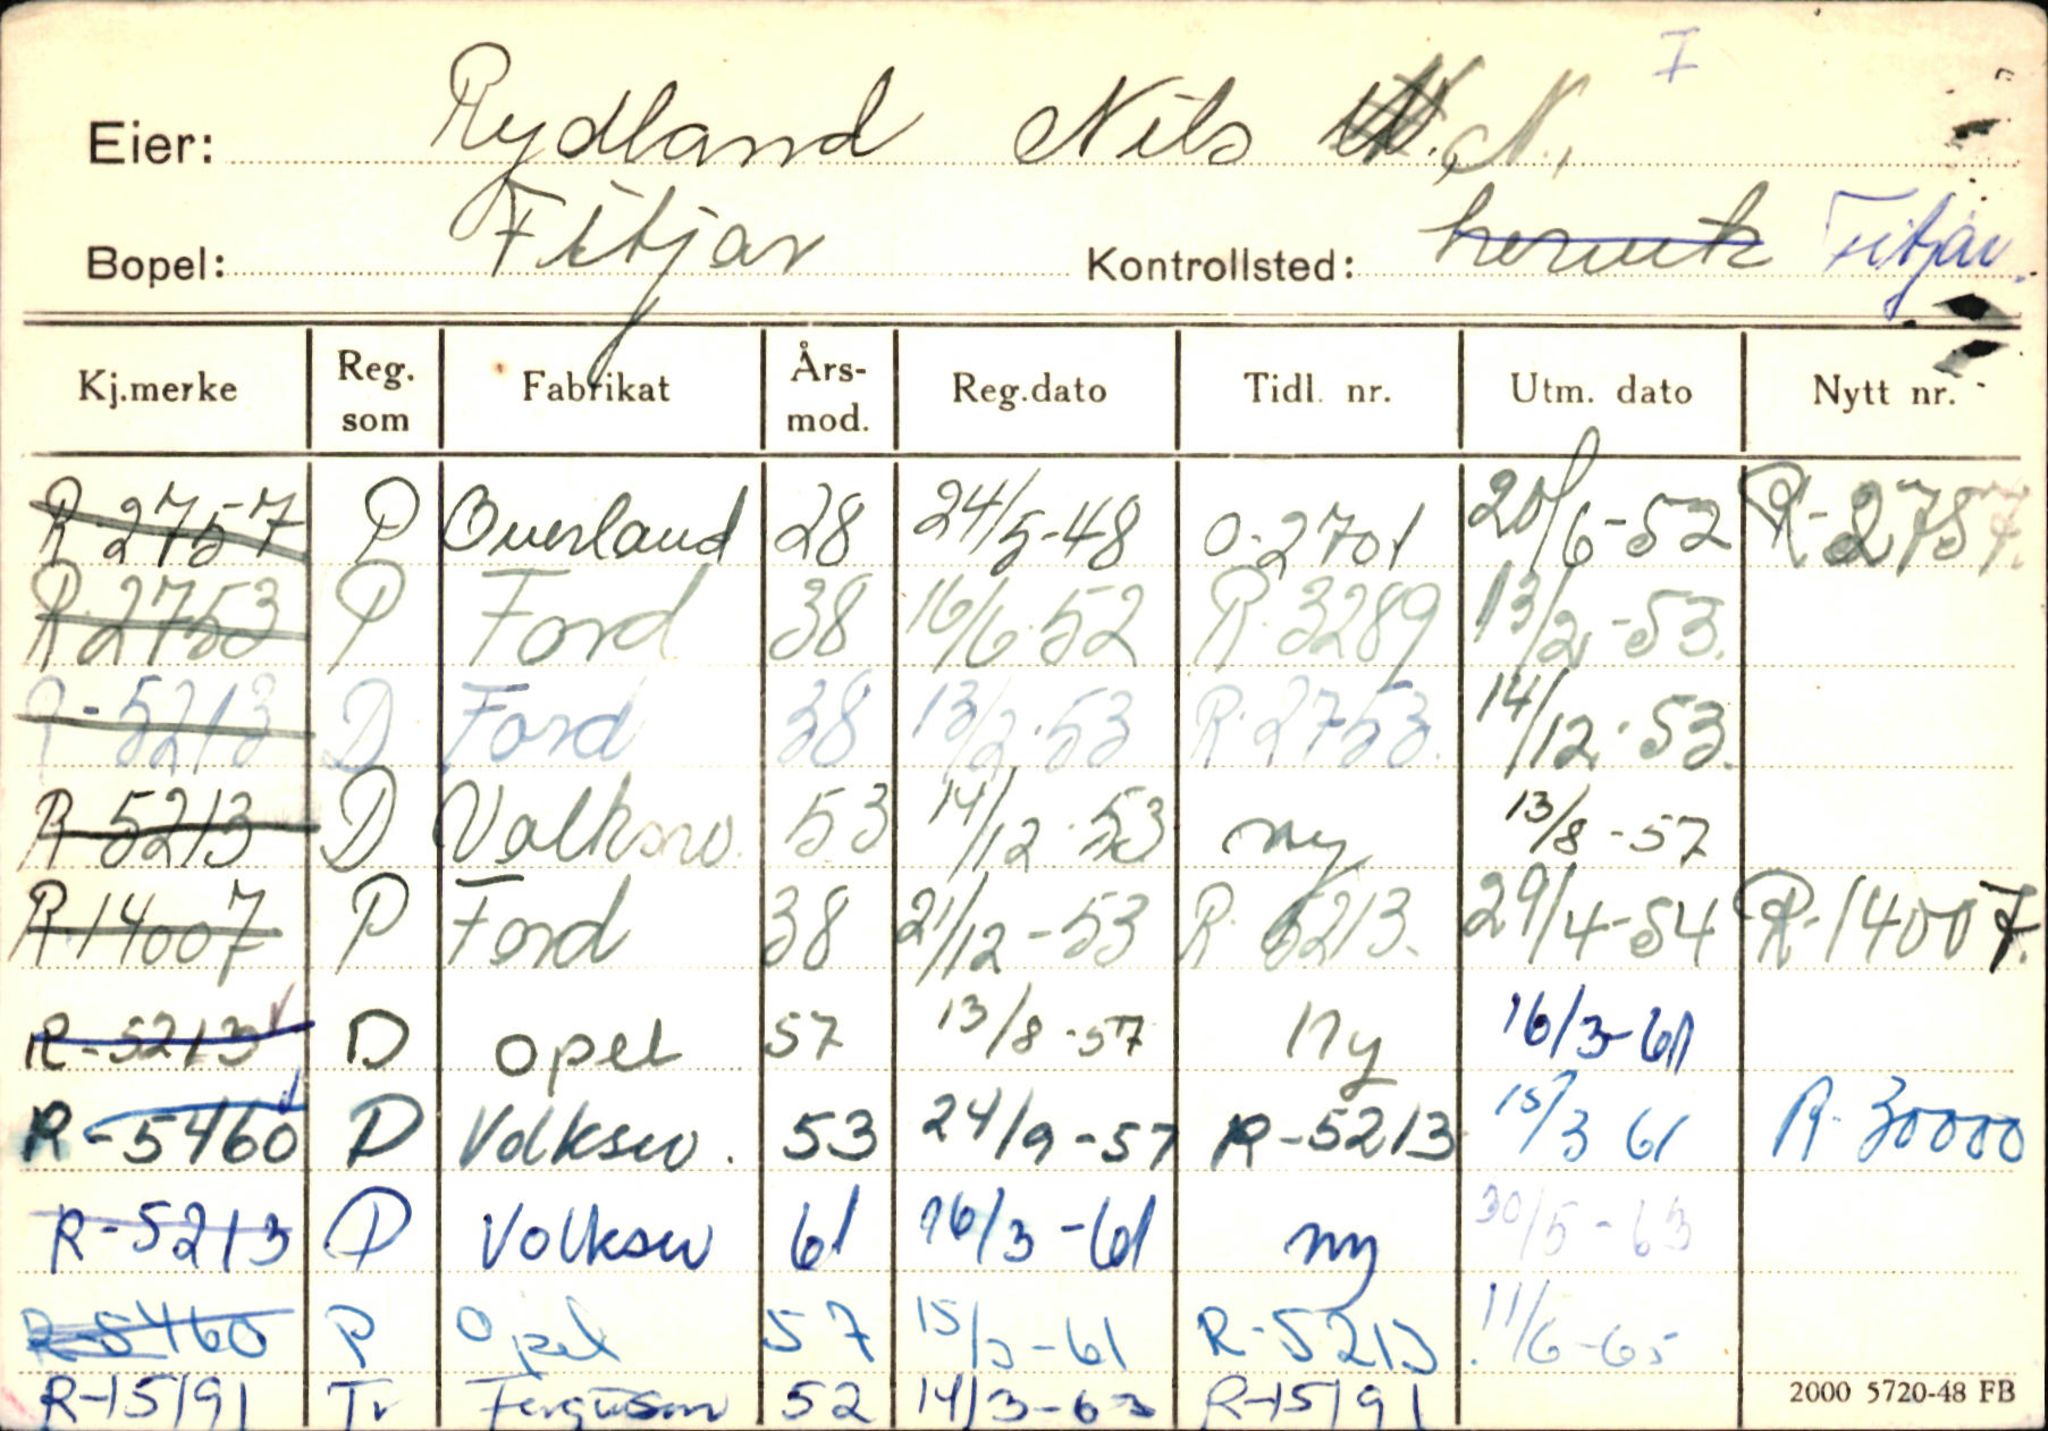 I
Eier: Rydland Nils N.
Bopel: Fitjar Kontrollsted: Lervik Fitjar
Kj.merke Reg. som Fabrikat Års-mod. Reg.dato Tidl. nr. Utm. dato Nytt nr.
R 2757 P Overland 28 24/5-48 O-2701 20/6-52 R-2757.
R 2753 P Ford 38 16/6-52 R-3289 13/2-53.
R-5213 D Ford 38 13/2-53 R-2753. 14/12-53.
R-5213 D Volksw. 53 14/12-53 ny 13/8-57
R 14007 P Ford 38 21/12-53 R-5213. 29/4-54 R-14007.
R-5213 D Opel 57 13/8-57 Ny 16/3-61
R-5460 D Volksw. 53 24/9-57 R-5213 15/3 61 R-30000
R-5213 P Volksw 61 16/3-61 ny 30/5-63
R-5460 P Opel 57 15/3-61 R-5213. 11/6-65
R-15191 Tr Ferguson 52 14/3-63 R-15191
2000 5720-48 FB